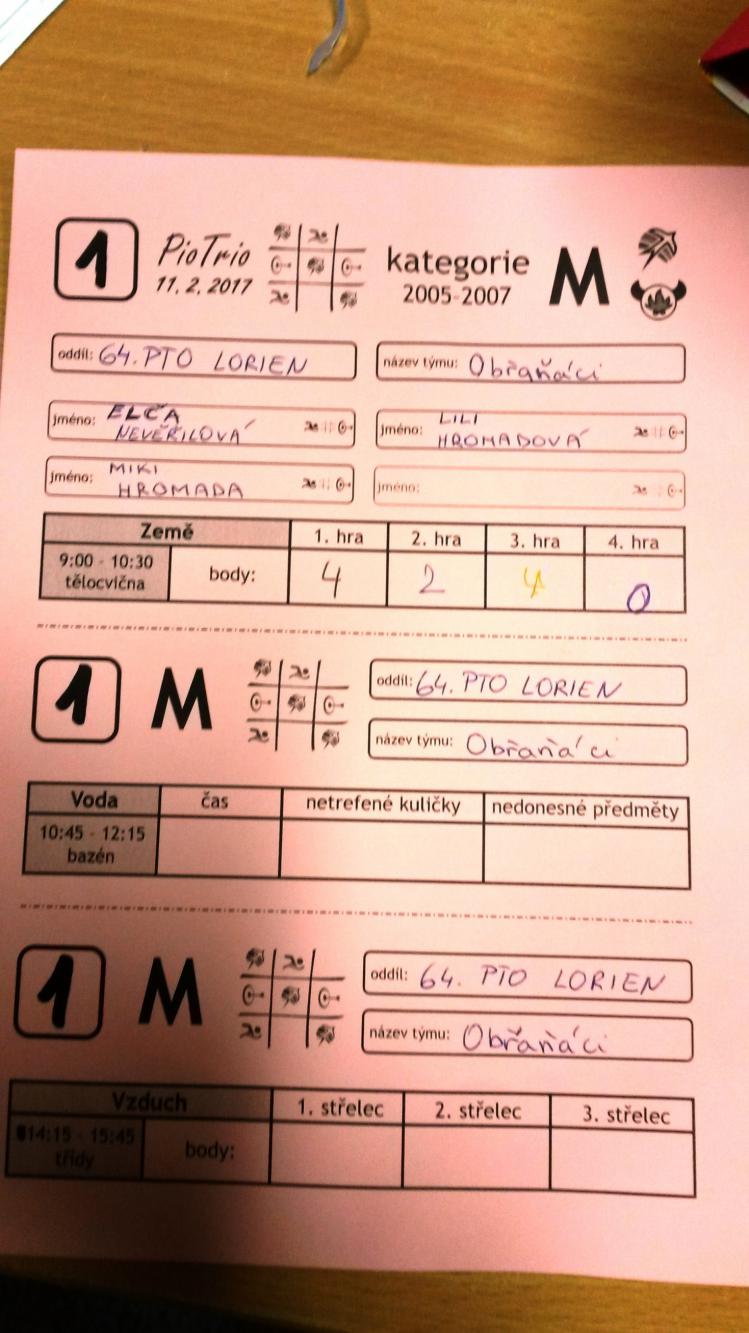 1 PioTrio 11. 2. 2017 kategorie 2005-2007 M
oddíl: 64. PTO LORIEN název týmu: Obřaňáci
jméno: ELČA NEVĚŘILOVÁ jméno: LILI HROMADOVÁ
jméno: MIKI HROMADA jméno:
Země 1. hra 2. hra 3. hra 4. hra
9:00 - 10:30 tělocvična body: 4 2 4 0
1 M oddíl: 64. PTO LORIEN
název týmu: Obřaňáci
Voda čas netrefené kuličky nedonesné předměty
10:45 - 12:15 bazén
1 M oddíl: 64. PTO LORIEN
název týmu: Obřaňáci
Vzduch 1. střelec 2. střelec 3. střelec
14:15 - 15:45 třídy body: